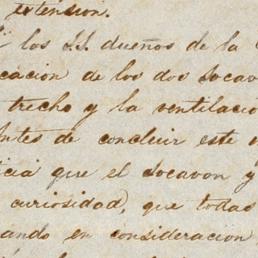 extension.
los SS. dueños de la
cacion de los dos socavo
trecho y la ventilacio
Antes de concluir este
icia que el socavon y
curiosidad, que todas
ando en consideracion